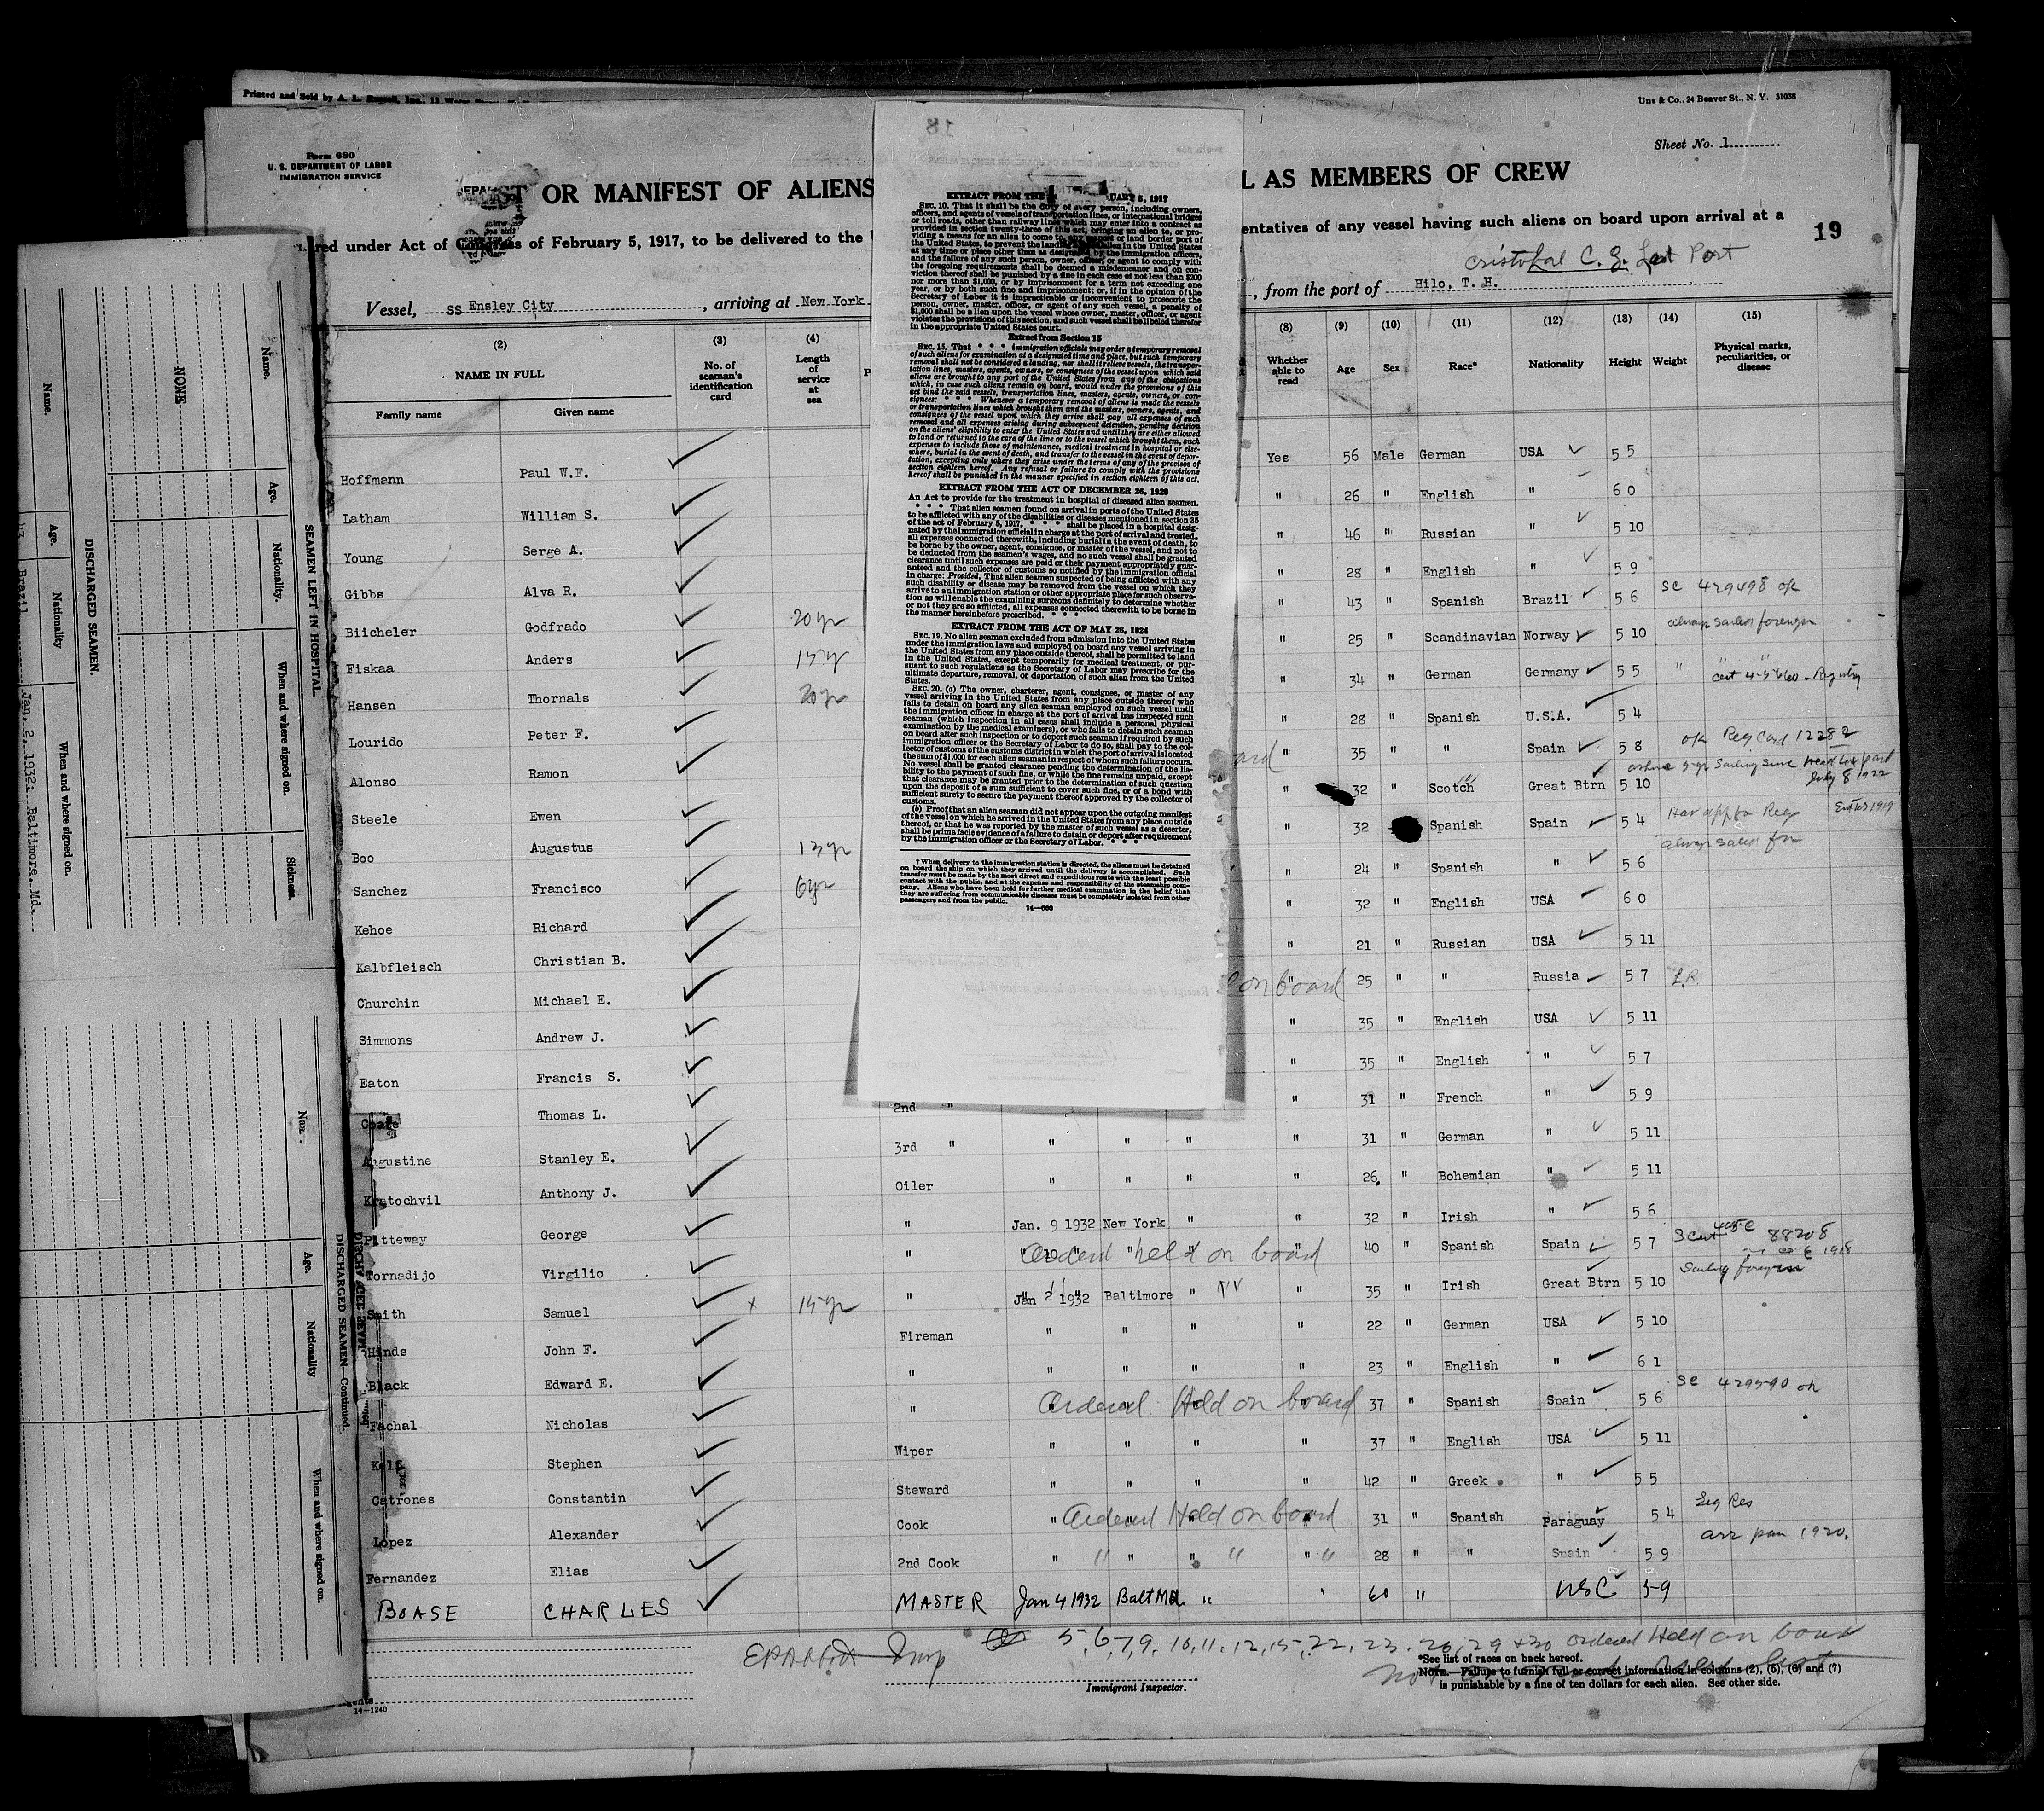 Printed and Sold by A. L.
Uns & Co., 24 Beaver St., N. Y. 31038
Form 680
U. S. DEPARTMENT OF LABOR
IMMIGRATION SERVICE
Sheet No. 1
OR MANIFEST OF ALIENS
L AS MEMBERS OF CREW
red under Act of Congress of February 5, 1917, to be delivered to the
entatives of any vessel having such aliens on board upon arrival at a
19
Cristobal C. Z. Last Port
Vessel, SS Ensley City, arriving at New York
, from the port of Hilo, T. H.
(2) (3) (4) (8) (9) (10) (11) (12) (13) (14) (15)
NAME IN FULL
Family name Given name
No. of seaman's identification card
Length of service at sea
Whether able to read
Age Sex Race* Nationality Height Weight
Physical marks, peculiarities, or disease
Hoffmann Paul W.F. Yes 56 Male German USA 5 5
Latham William S. " 26 " English " 6 0
Young Serge A. " 46 " Russian " 5 10
Gibbs Alva R. " 28 " English " 5 9
Biicheler Godfrado 20 yr " 43 " Spanish Brazil 5 6 SC 429498 ok
Fiskaa Anders 15 yr " 25 " Scandinavian Norway 5 10 always sailed foreign
Hansen Thornals 20 yr " 34 " German Germany 5 5 " " "
Lourido Peter F. " 28 " Spanish U.S.A. 5 4
Alonso Ramon " 35 " " Spain 5 8 ok Reg Card 12282
Steele Ewen " 32 " Scotch Great Btrn 5 10 July 8 1922
Boo Augustus 13 yr " 32 " Spanish Spain 5 4
Sanchez Francisco 6 yr " 24 " Spanish " 5 6 always sailed for
Kehoe Richard " 32 " English USA 6 0
Kalbfleisch Christian B. " 21 " Russian USA 5 11
Churchin Michael E. on board " 25 " " Russia 5 7 L.R.
Simmons Andrew J. " 35 " English USA 5 11
Eaton Francis S. " 35 " English " 5 7
Thomas L. 2nd " " 31 " French " 5 9
Augustine Stanley E. 3rd " " " " " 31 " German " 5 11
Kratochvil Anthony J. Oiler " " " " 26 " Bohemian " 5 11
Pitteway George " Jan. 9 1932 New York " " 32 " Irish " 5 6
Tornadijo Virgilio " Ordered held on board 40 " Spanish Spain 5 7 88208
Smith Samuel x 15 yr " Jan 2 1932 Baltimore " " 35 " Irish Great Btrn 5 10
Hinds John F. Fireman " " " 22 " German USA 5 10
Black Edward E. " " " " " 23 " English " 6 1
Fachal Nicholas " Ordered Held on board 37 " Spanish Spain 5 6 SC 429590 ok
Stephen Wiper " " " " 37 " English USA 5 11
Catrones Constantin Steward " " " " 42 " Greek " 5 5
Lopez Alexander Cook " Ordered Held on board 31 " Spanish Paraguay 5 4 Leg Res
Fernandez Elias 2nd Cook " " " " 28 " " Spain 5 9 arr 1920.
BOASE CHARLES MASTER Jan 4 1932 Balt Md. " " 60 " USC 5-9
5, 6, 7, 9, 10, 11, 12, 15, 22, 23, 26, 29 + 30 Ordered Held on board
*See list of races on back hereof.
NOTE.—Failure to furnish full or correct information in columns (2), (5), (6) and (7)
is punishable by a fine of ten dollars for each alien. See other side.
Immigrant Inspector.
14—1240
EXTRACT FROM THE
SEC. 10. That it shall be the duty of every person, including owners,
officers, and agents of vessels of transportation lines, or international bridges
or toll roads, other than railway lines which may enter into a contract as
provided in section twenty-three of this act, bringing an alien to, or pro-
viding a means for an alien to come to,
the United States, to prevent the landing
at any time or place other than as designated by the immigration officers,
and the failure of any such person, owner, officer, or agent to comply with
the foregoing requirements shall be deemed a misdemeanor and on con-
viction thereof shall be punished by a fine in each case of not less than $200
nor more than $1,000, or by imprisonment for a term not exceeding one
year, or by both such fine and imprisonment; or, if in the opinion of the
Secretary of Labor it is impracticable or inconvenient to prosecute the
person, owner, master, officer, or agent of any such vessel, a penalty of
$1,000 shall be a lien upon the vessel whose owner, master, officer, or agent
violates the provisions of this section, and such vessel shall be libeled therefor
in the appropriate United States court.
Extract from Section 15
SEC. 15. That * * * immigration officials may order a temporary removal
of such aliens for examination at a designated time and place, but such temporary
removal shall not be considered a landing, nor shall it relieve vessels, the transpor-
tation lines, masters, agents, owners, or consignees of the vessel upon which said
aliens are brought to any port of the United States from any of the obligations
which, in case such aliens remain on board, would under the provisions of this
act bind the said vessels, transportation lines, masters, agents, owners, or con-
signees: * * * Whenever a temporary removal of aliens is made the vessels
or transportation lines which brought them and the masters, owners, agents, and
consignees of the vessel upon which they arrive shall pay all expenses of such
removal and all expenses arising during subsequent detention, pending decision
on the aliens' eligibility to enter the United States and until they are either allowed
to land or returned to the care of the line or to the vessel which brought them, such
expenses to include those of maintenance, medical treatment in hospital or else-
where, burial in the event of death, and transfer to the vessel in the event of depor-
tation, excepting only where they arise under the terms of any of the provisos of
section eighteen hereof. Any refusal or failure to comply with the provisions
hereof shall be punished in the manner specified in section eighteen of this act.
EXTRACT FROM THE ACT OF DECEMBER 26, 1920
An Act to provide for the treatment in hospital of diseased alien seamen.
* * * That alien seamen found on arrival in ports of the United States
to be afflicted with any of the disabilities or diseases mentioned in section 35
of the act of February 5, 1917, * * * shall be placed in a hospital desig-
nated by the immigration official in charge at the port of arrival and treated,
all expenses connected therewith, including burial in the event of death, to
be borne by the owner, agent, consignee, or master of the vessel, and not to
be deducted from the seamen's wages, and no such vessel shall be granted
clearance until such expenses are paid or their payment appropriately guar-
anteed and the collector of customs so notified by the immigration official
in charge: Provided, That alien seamen suspected of being afflicted with any
such disability or disease may be removed from the vessel on which they
arrive to an immigration station or other appropriate place for such observa-
tion as will enable the examining surgeons definitely to determine whether
or not they are so afflicted, all expenses connected therewith to be borne in
the manner hereinbefore prescribed. * * *
EXTRACT FROM THE ACT OF MAY 26, 1924
SEC. 19. No alien seaman excluded from admission into the United States
under the immigration laws and employed on board any vessel arriving in
the United States from any place outside thereof, shall be permitted to land
in the United States, except temporarily for medical treatment, or pur-
suant to such regulations as the Secretary of Labor may prescribe for the
ultimate departure, removal, or deportation of such alien from the United
States.
SEC. 20. (a) The owner, charterer, agent, consignee, or master of any
vessel arriving in the United States from any place outside thereof who
fails to detain on board any alien seaman employed on such vessel until
the immigration officer in charge at the port of arrival has inspected such
seaman (which inspection in all cases shall include a personal physical
examination by the medical examiners), or who fails to detain such seaman
on board after such inspection or to deport such seaman if required by such
immigration officer or the Secretary of Labor to do so, shall pay to the col-
lector of customs of the customs district in which the port of arrival is located
the sum of $1,000 for each alien seaman in respect of whom such failure occurs.
No vessel shall be granted clearance pending the determination of the lia-
bility to the payment of such fine, or while the fine remains unpaid, except
that clearance may be granted prior to the determination of such question
upon the deposit of a sum sufficient to cover such fine, or of a bond with
sufficient surety to secure the payment thereof approved by the collector of
customs.
(b) Proof that an alien seaman did not appear upon the outgoing manifest
of the vessel on which he arrived in the United States from any place outside
thereof, or that he was reported by the master of such vessel as a deserter,
shall be prima facie evidence of a failure to detain or deport after requirement
by the immigration officer or the Secretary of Labor. * * *
† When delivery to the immigration station is directed, the aliens must be detained
on board the ship on which they arrived until the delivery is accomplished. Such
transfer must be made by the most direct and expeditious route with the least possible
contact with the public, and at the expense and responsibility of the steamship com-
pany. Aliens who have been held for further medical examination in the belief that
they are suffering from communicable diseases must be completely isolated from other
passengers and from the public.
14—680
SEAMEN LEFT IN HOSPITAL.
Name. Age. Nationality. When and where signed on. Sickness.
NONE
DISCHARGED SEAMEN.
Name. Age. Nationality When and where signed on.
43 Brazil Jan. 2, 1932: Baltimore. Md.
DISCHARGED SEAMEN—Continued.
Age. Nationality When and where signed on.